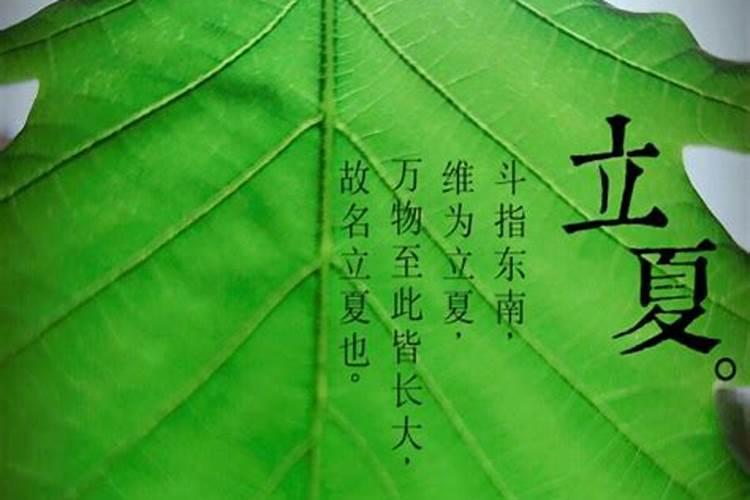 立夏。
斗指东南，
维为立夏，
万物至此皆长大，
故名立夏也。